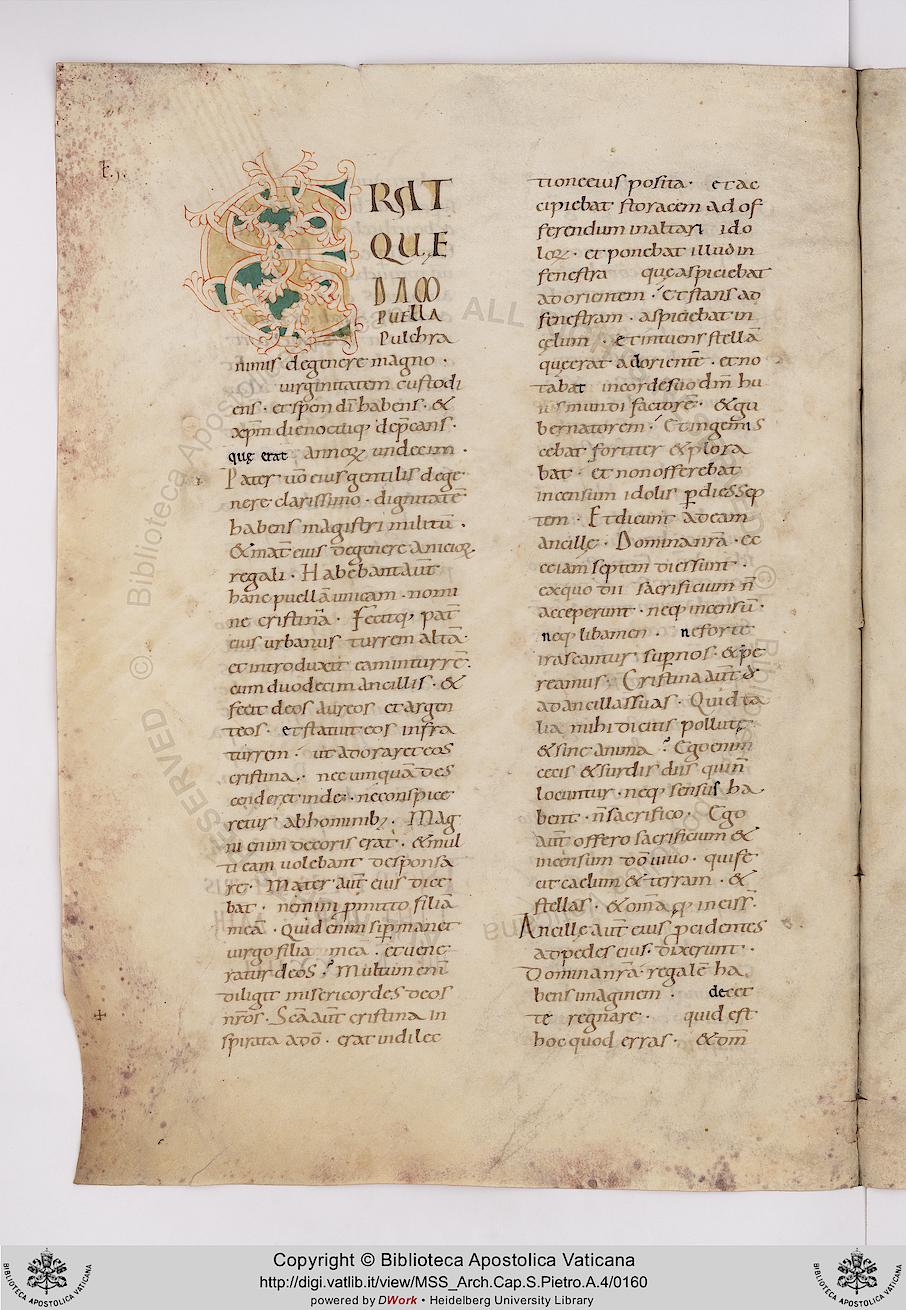 ꝉ. ȷ.
ERAT
QUE
DAM
PUELLA
Pulchra
nimis degenere magno ·
virginitatem custodi
ens · et spem dī habens · &
xp̄m die noctuq; dep̄cans ·
quę erat annoꝝ undecim ·
Pater ūo eius gentilis dege
nere clarissimo · dignitatē
habens magistri militū ·
& mat̄ eius degenere anicioꝝ ·
regali · Habebant aūt
hanc puellā unicam · nomi
ne cristina · Fecitq; pat̄
eius urbanus turrem altā ·
et introduxit eam in turrē ·
cum duodecim ancillis · &
fecit deos aureos et argen
teos · et statuit eos infra
turrem · ut adoraret eos
cristina · nec umquā des
cenderet inde · nec conspice
retur ab hominib; · Mag
ni enim decoris erat · & mul
ti eam volebant desponsa
re · Mater aūt eius dice
bat · nemini ꝓmitto filiā
meā · Quid enim si ꝑmanet
virgo filia mea · et vene
ratur deos ? Multum eni
diligit misericordes deos
nr̄os · Sc̄a aūt cristina in
spirata a dō · erat in dilec
tione eius posita · et ac
cipiebat storacem ad of
ferendum in altari ido
loꝝ · et ponebat illud in
fenestra quę aspiciebat
ad orientem · Et stans ad
fenestram · aspiciebat in
cęlum · et intuens stellā
quę erat ad orientē · et no
tabat in corde suo dm̄ hu
ius mundi factorē · & gu
bernatorem · Et ingemis
cebat fortiter & plora
bat · et non offerebat
incensum idolis ꝑ dies sep
tem · Et dicunt ad eam
ancille · Domina nr̄a · ec
ce iam septem dies sunt ·
ex quo dii sacrificium n̄
acceperunt · neq; incensū ·
neq; libamen · ne forte
irascantur sup nos · & pe
reamus · Cristina aūt d̄
ad ancillas suas · Quid ta
lia mihi dicitis pollutę ·
& sine anima ? Ego enim
cecis & surdis diis qui n̄
locuntur · neq; sensus ha
bent · n̄ sacrifico · Ego
aūt offero sacrificium &
incensum dō vivo · qui fe
cit caelum & terram · &
stellas · & om̄a quę in eis s̄ ·
Ancillę aūt eius pcidentes
ad pedes eius · dixerunt ·
Domina nr̄a · regalē ha
bens imaginem · decet
te regnare · quid est
hoc quod erras · & dm̄
Copyright © Biblioteca Apostolica Vaticana
http://digi.vatlib.it/view/MSS_Arch.Cap.S.Pietro.A.4/0160
powered by DWork • Heidelberg University Library